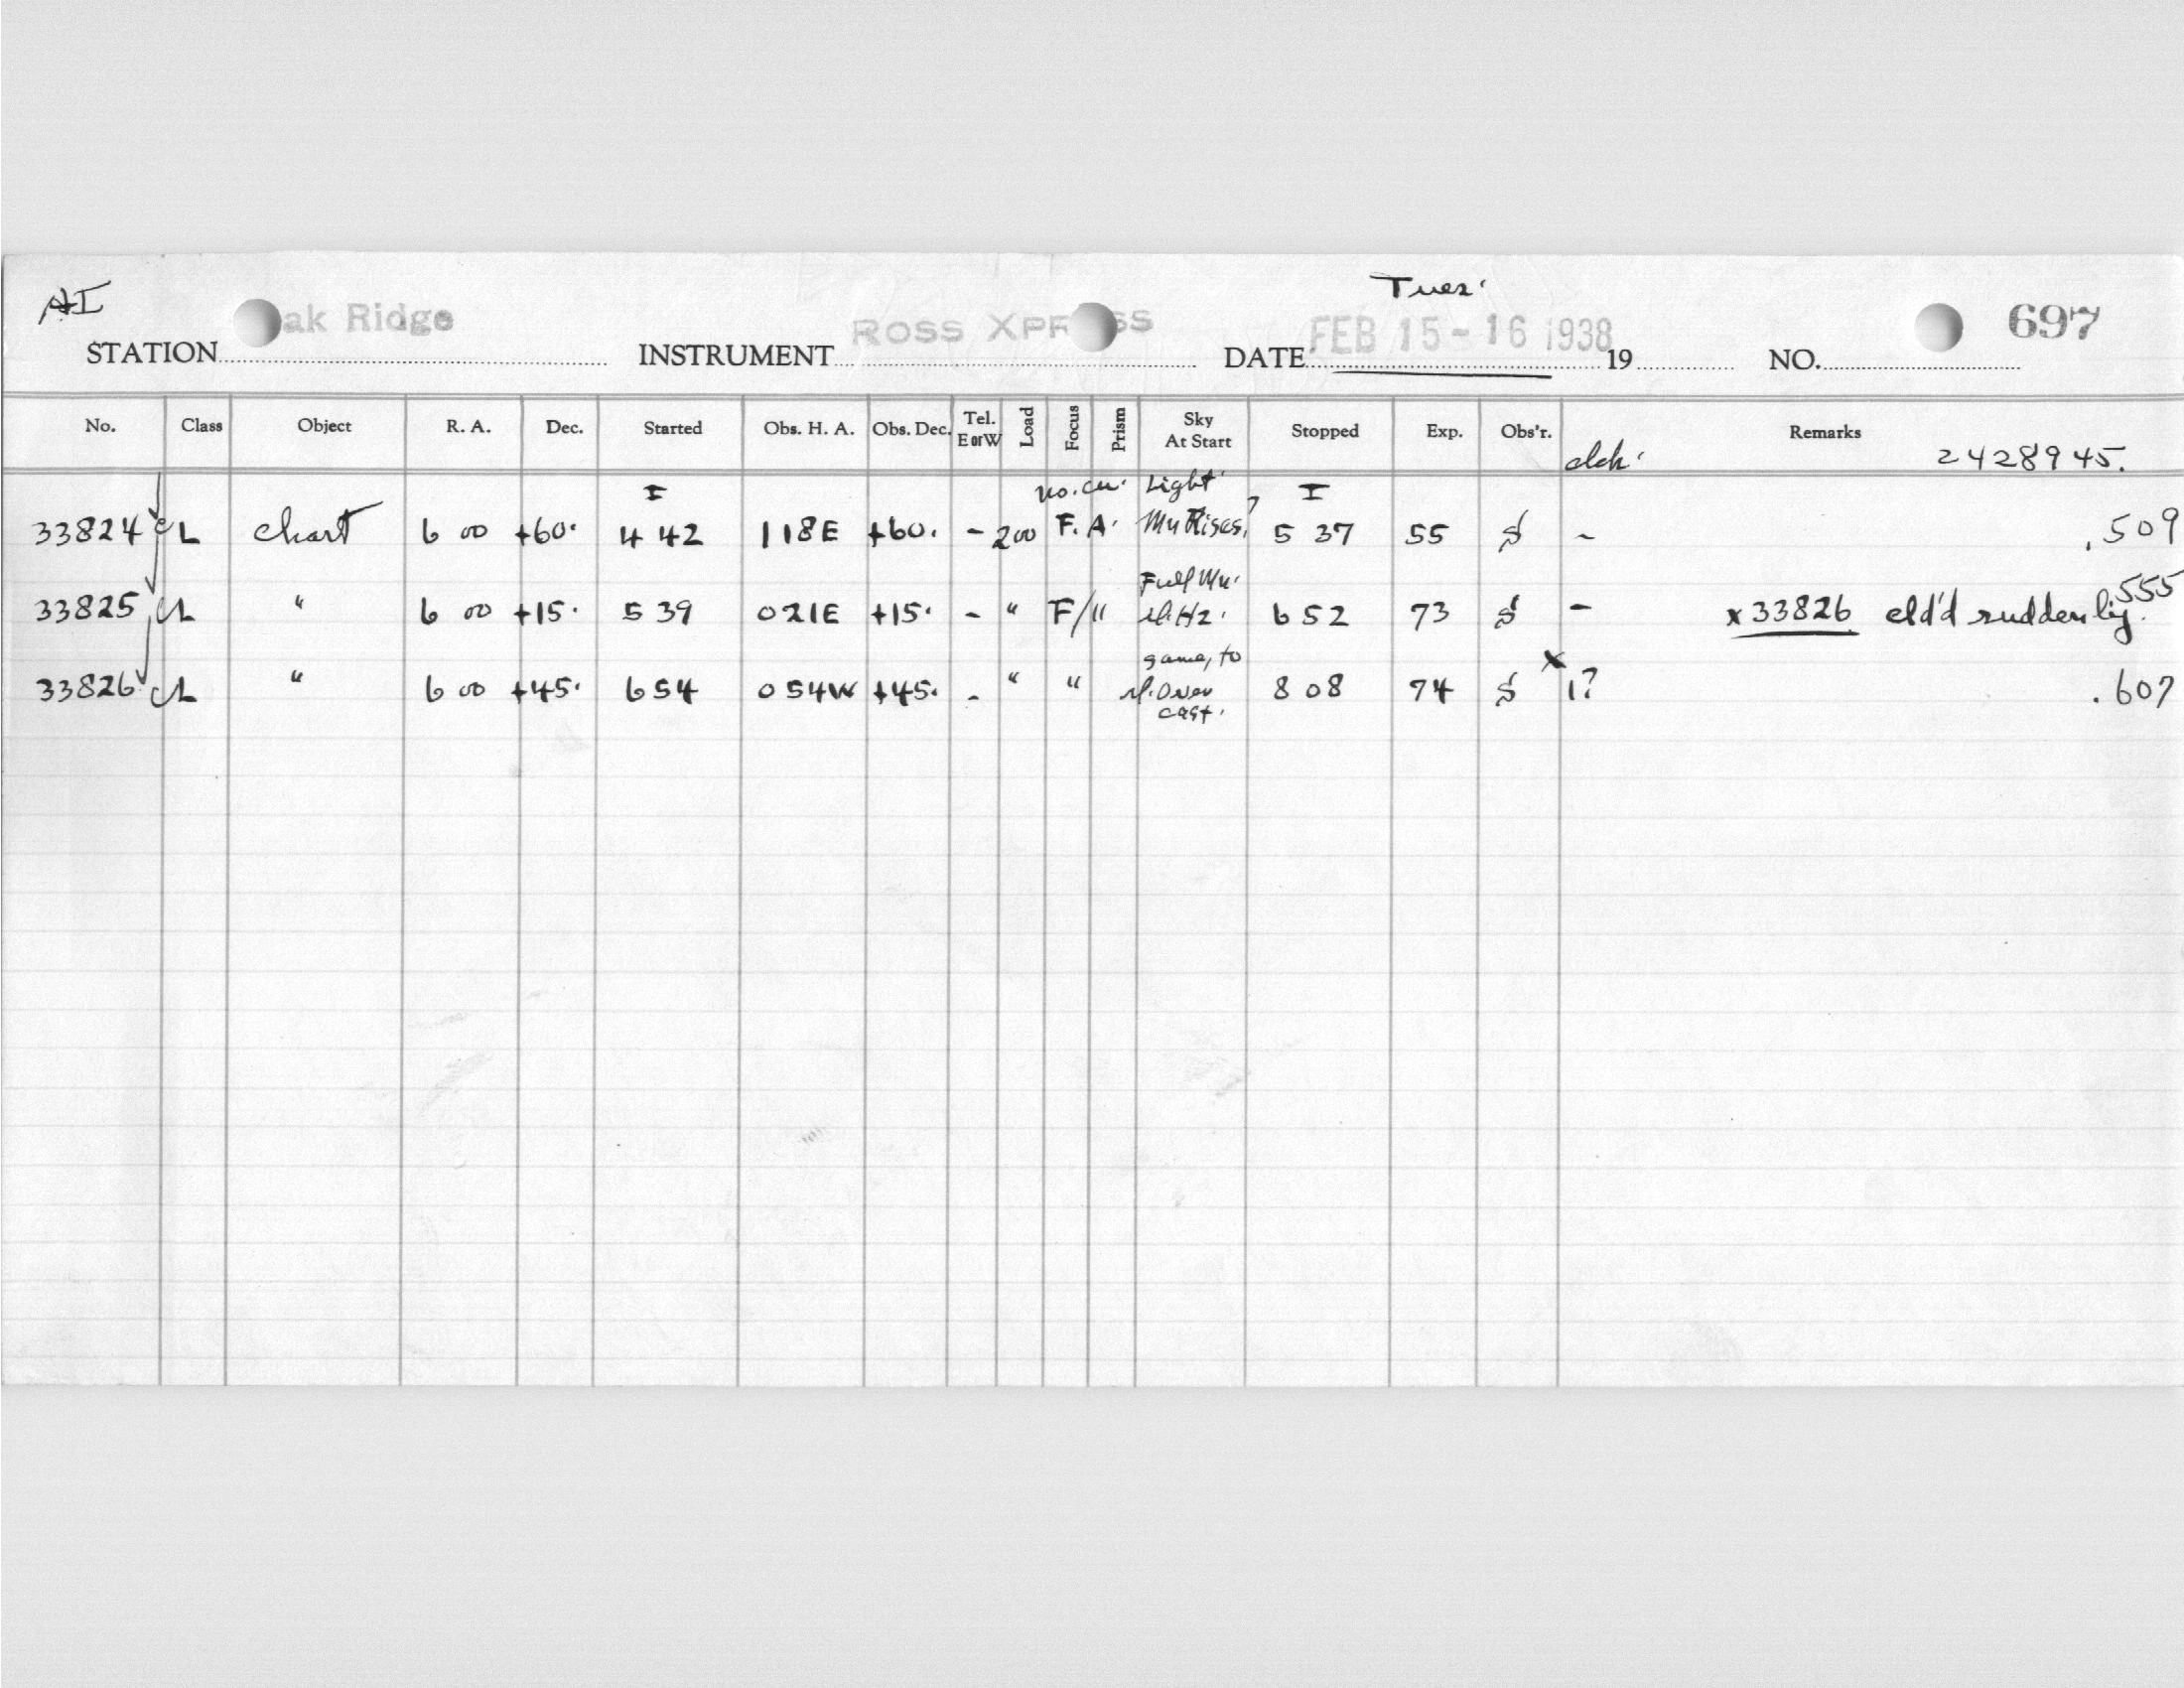 AI Tues.
STATION Oak Ridge INSTRUMENT ROSS XPRESS DATE FEB 15-16 1938 19 NO. 697
No. Class Object R. A. Dec. Started Obs. H. A. Obs. Dec. Tel. E or W Load Focus Prism Sky At Start Stopped Exp. Obs'r. Remarks
clck. 2428945.
I no. cu. Light I
33824 CL chart 6 00 +60. 4 42 118E +60. - 200 F. A. Mn Rises. 5 37 55 S - .509
Full Mn.
33825 CL " 6 00 +15. 5 39 021E +15. - " F/" sl. Hz. 6 52 73 S - x 33826 cld'd suddenly. .555
same, to
33826 CL " 6 00 +45. 6 54 054W +45. - " " sl. Over 8 08 74 S x 1? .607
cast.